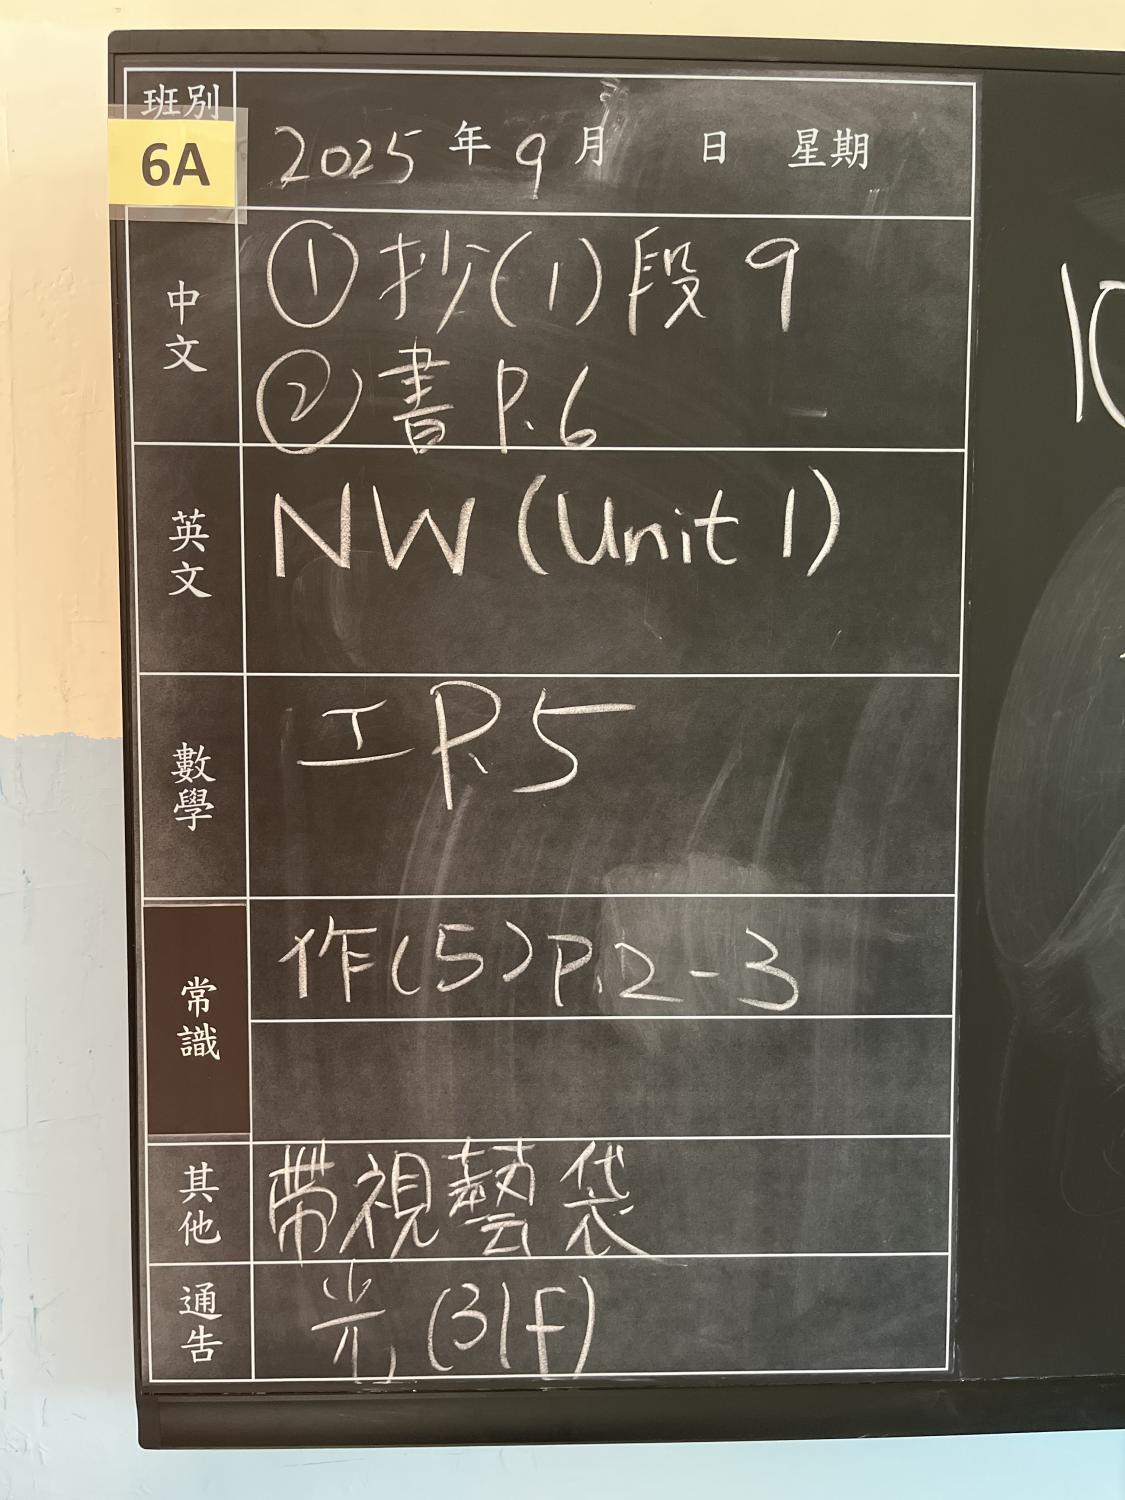 班別
6A
2025 年 9 月 日 星期
中文
① 抄(1) 段 9
② 書 P.6
英文
NW (Unit 1)
數學
工 P.5
常識
作(5) P.2-3
其他
帶視藝袋
通告
光 (31F)
10